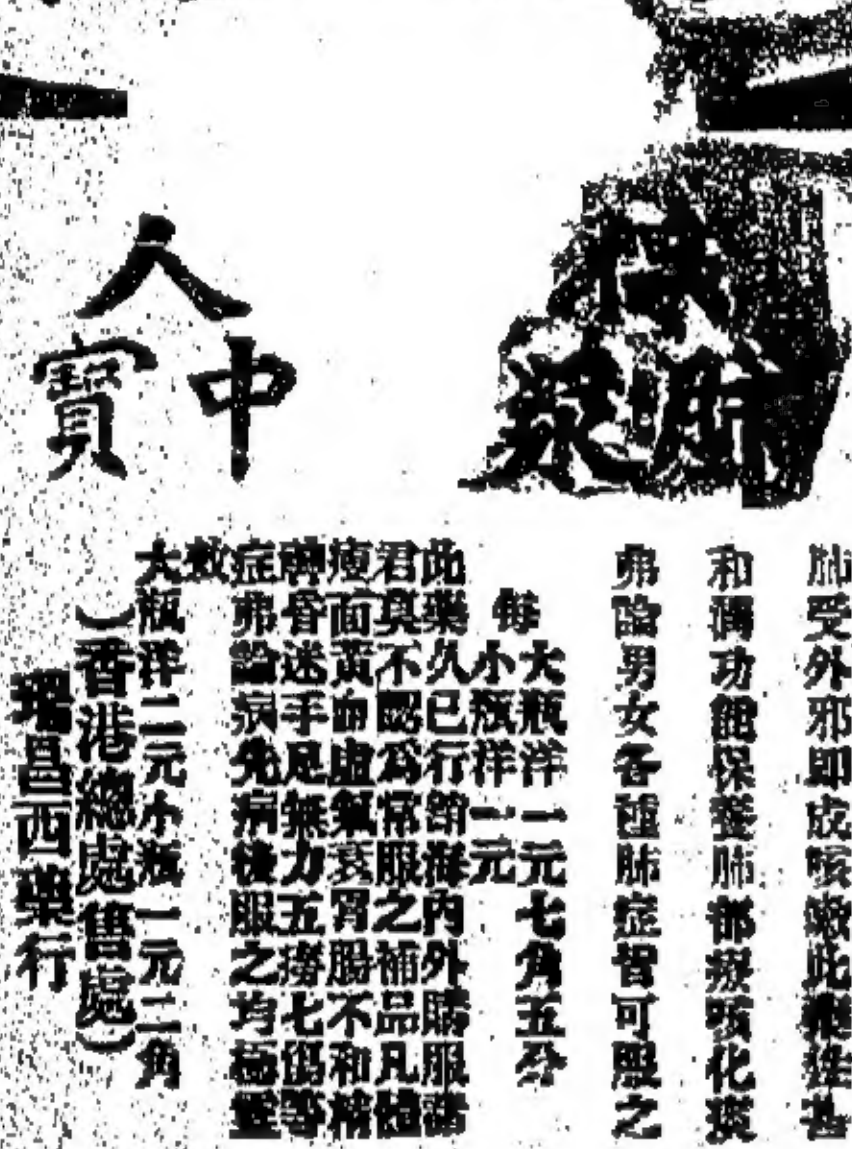 肺漿
肺受外邪即成咳嗽此漿性甚
和潤功能保養肺部療咳化痰
弗論男女各種肺症皆可服之
每
大瓶洋一元七角五分
小瓶洋一元
人中寶
此藥久已行銷海內外購服諸
君莫不認為常服之補品凡體
瘦面黃血虛氣衰胃腸不和精
神昏迷手足無力五癆七傷等
症弗論病先病後服之均極靈
效
大瓶洋二元小瓶一元二角
(香港總處售處)
瑞昌西藥行